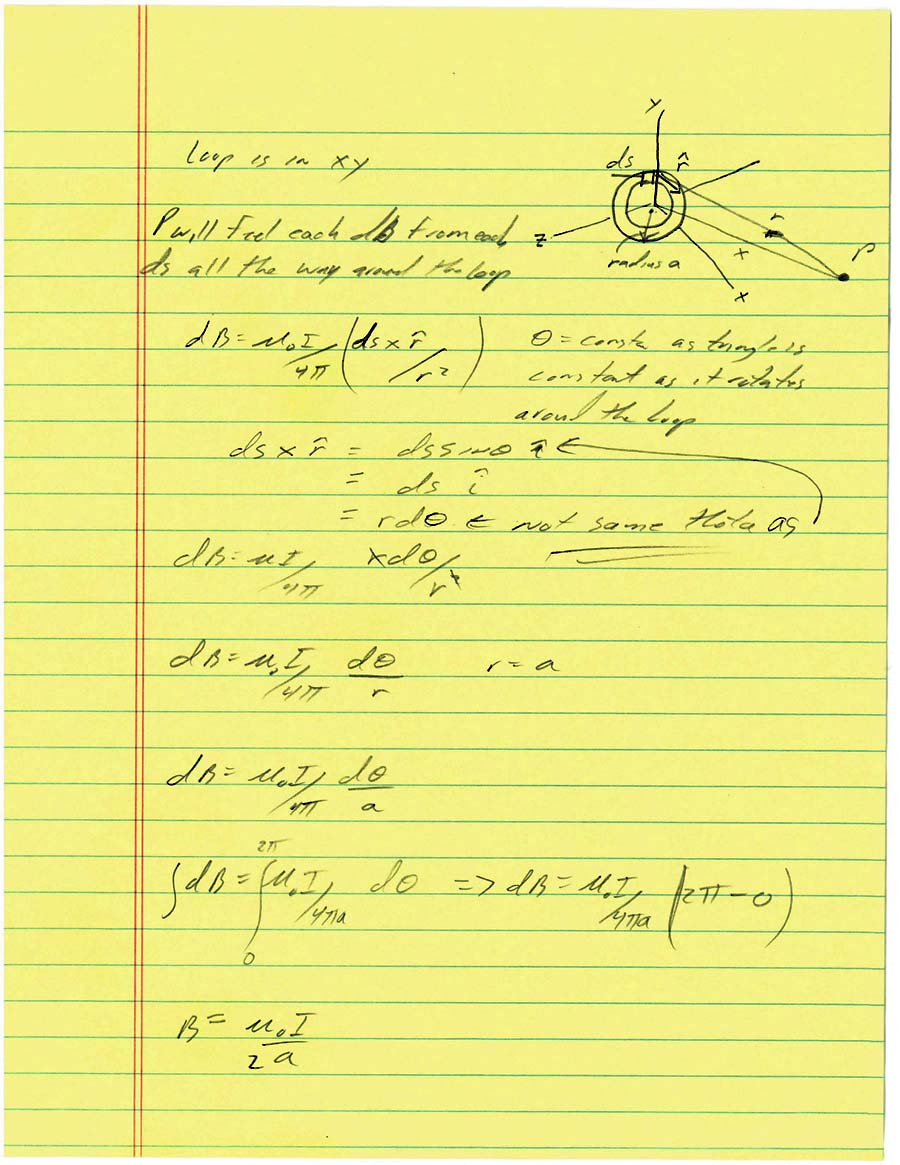 y
Loop is in xy
ds r̂
P will Feel each dB from each
z r P
x
ds all the way around the loop
radius a
x
dB = μ₀I/4π (ds x r̂/r²) θ = consta as triangle is
constant as it rotates
around the loop
ds x r̂ = ds sinθ î ←
= ds î
= rdθ ← not same theta as
dB = μI/4π rdθ/r²
dB = μ₀I/4π dθ/r r = a
dB = μ₀I/4π dθ/a
∫dB = ∫₀²π μ₀I/4πa dθ => dB = μ₀I/4πa (2π - 0)
B = μ₀I/2a